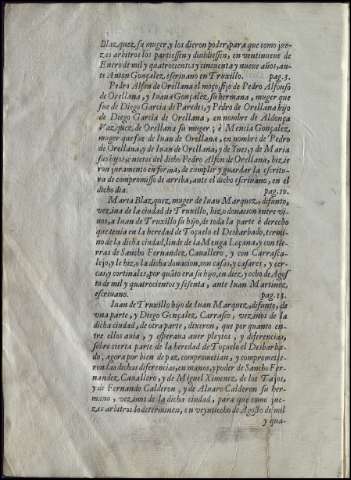 Blazquez, su muger, y los dieron poder, para que como jue-
zes arbitros los partiessen y diuidiessen, en veintinueue de
Enero de mil y quatrocientos y cincuenta y nueue años, an-
te Anton Gonçalez, escriuano en Truxillo. pag.5.
Pedro Alfon de Orellana el moço, hijo de Pedro Alfonso
de Orellana, y Iuana Gonçalez, su hermana, muger que
fue de Diego Garcia de Paredes, y Pedro de Orellana hijo
de Diego Garcia de Orellana, en nombre de Aldonça
Vazquez, de Orellana su muger, e Mencia Gonçalez,
muger que fue de Iuan de Orellana, en nombre de Pedro
de Orellana, y de Iuan de Orellana, y de Ynes, y de Maria
sus hijos, e nietos del dicho Pedro Alfon de Orellana, hizie-
ron juramento en forma, de cumplir y guardar la escritu-
ra de compromisso de arriba, ante el dicho escriuano, en el
dicho dia. pag.10.
Maria Blazquez, muger de Iuan Marquez, difunto,
vezina de la ciudad de Truxillo, hizo donacion entre viuos,
a Iuan de Truxillo su hijo, de toda la parte è derecho
que tenia en la heredad de Toçuelo el Desbarbado, termi-
no de la dicha ciudad, linde de la Menga Loçana, y con tie-
rras de Sancho Fernandez, Cauallero, y con Carrasca-
lejo, y le hizo la dicha donacion, con casas, y casares, y cer-
cas, y cortinales, por quãto era su hijo, en diez, y ocho de Agos
to de mil y quatrocientos y sesenta, ante Iuan Martinez,
escriuano. pag.13.
Iuan de Truxillo hijo de Iuan Marquez, difunto, de
vna parte, y Diego Gonçalez, Carrasco, vezinos de la
dicha ciudad, de otra parte, dixeron, que por quanto en-
tre ellos auia, y esperaua auer pleytos, y diferencias,
sobre cierta parte de la heredad de Toçuelo el Desbarba-
do, agora por bien de paz, comprometian, y comprometie-
ron las dichas diferencias, en manos, y poder de Sancho Fer-
nandez, Cauallero, y de Miguel Ximenez, de los Tajos,
y de Fernando Calderon, y de Aluaro Calderon su her-
mano, vezinos de la dicha ciudad, para que como jue-
zes arbitros lo determinen, en veyntiocho de Agosto de mil
y qua-